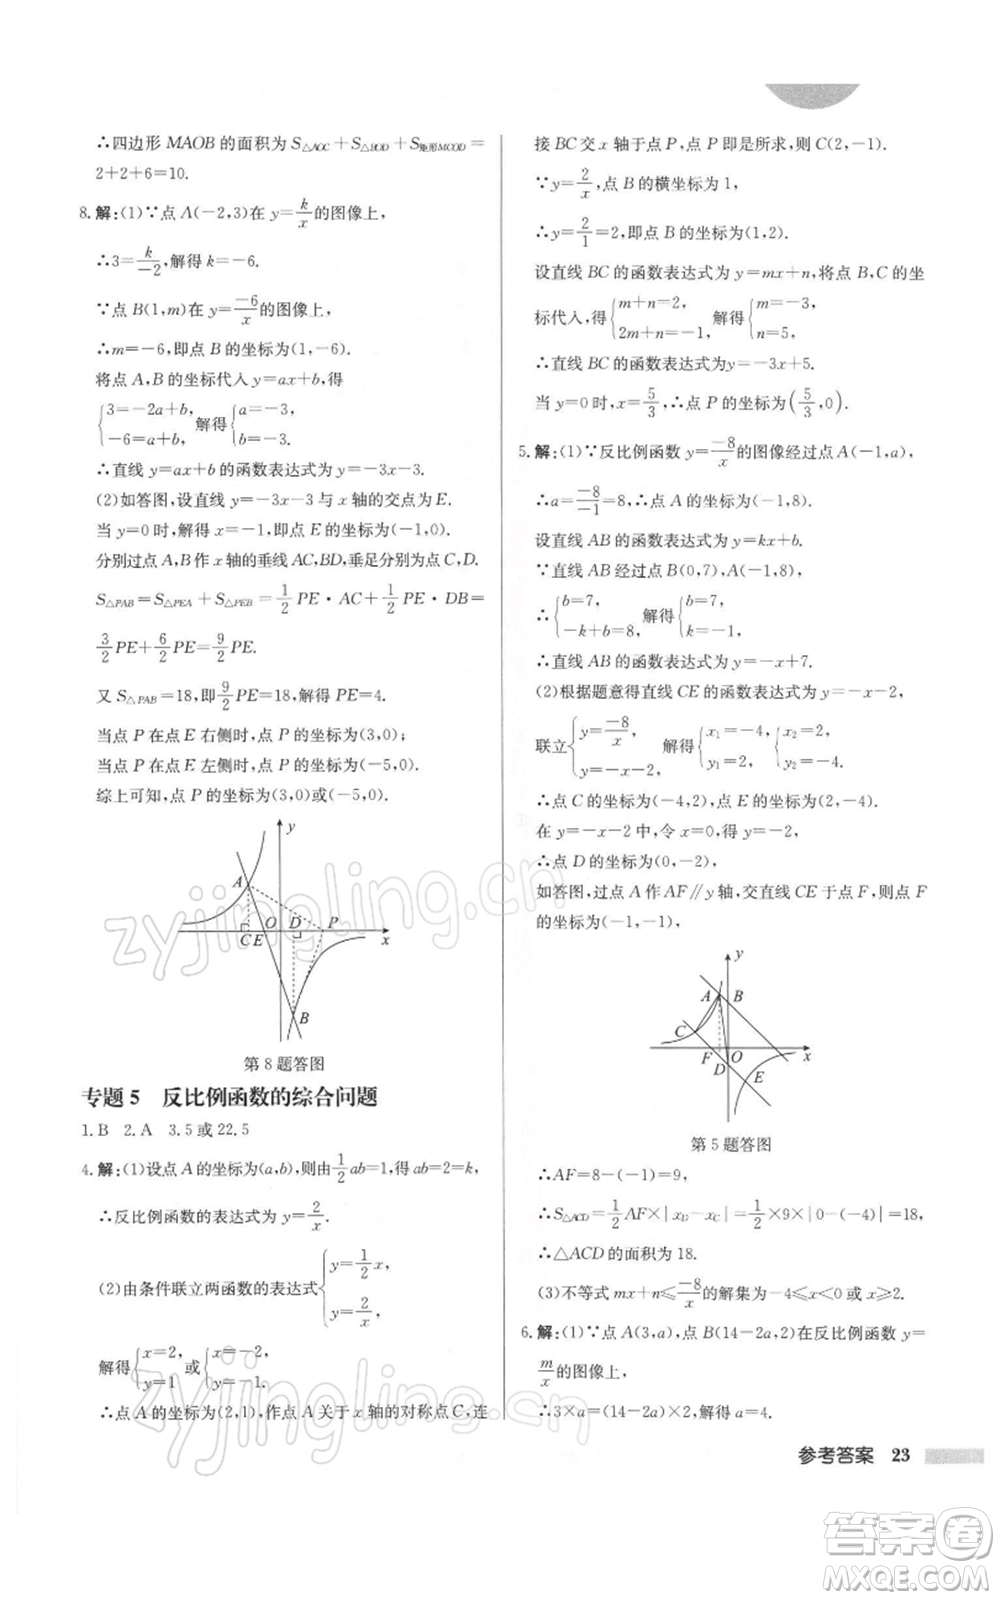 ∴四边形 MAOB 的面积为 S△AOC + S△BOD + S矩形MCOD =
2+2+6=10.
8.解:(1)∵点 A(−2,3)在 y=k/x的图像上,
∴3=k/−2,解得 k=−6.
∵点 B(1,m)在 y=−6/x的图像上,
∴m=−6,即点 B 的坐标为(1,−6).
将点 A,B 的坐标代入 y=ax+b,得
{3=−2a+b, −6=a+b, 解得{a=−3, b=−3.
∴直线 y=ax+b 的函数表达式为 y=−3x−3.
(2)如答图,设直线 y=−3x−3 与 x 轴的交点为 E.
当 y=0 时,解得 x=−1,即点 E 的坐标为(−1,0).
分别过点 A,B 作 x 轴的垂线 AC,BD,垂足分别为点 C,D.
S△PAB=S△PEA+S△PEB=1/2 PE·AC+1/2 PE·DB=
3/2 PE+6/2 PE=9/2 PE.
又 S△PAB=18,即9/2 PE=18,解得 PE=4.
当点 P 在点 E 右侧时,点 P 的坐标为(3,0);
当点 P 在点 E 左侧时,点 P 的坐标为(−5,0).
综上可知,点 P 的坐标为(3,0)或(−5,0).
y
A
O D P
C E x
B
第 8 题答图
专题 5 反比例函数的综合问题
1.B 2.A 3.5 或 22.5
4.解:(1)设点 A 的坐标为(a,b),则由1/2 ab=1,得 ab=2=k,
∴反比例函数的表达式为 y=2/x.
(2)由条件联立两函数的表达式{y=1/2 x, y=2/x,
解得{x=2, y=1 或{x=−2, y=−1.
∴点 A 的坐标为(2,1),作点 A 关于 x 轴的对称点 C,连
接 BC 交 x 轴于点 P,点 P 即是所求,则 C(2,−1).
∵y=2/x,点 B 的横坐标为 1,
∴y=2/1=2,即点 B 的坐标为(1,2).
设直线 BC 的函数表达式为 y=mx+n,将点 B,C 的坐
标代入,得{m+n=2, 2m+n=−1, 解得{m=−3, n=5,
∴直线 BC 的函数表达式为 y=−3x+5.
当 y=0 时,x=5/3,∴点 P 的坐标为(5/3,0).
5.解:(1)∵反比例函数 y=−8/x的图像经过点 A(−1,a),
∴a=−8/−1=8,∴点 A 的坐标为(−1,8).
设直线 AB 的函数表达式为 y=kx+b.
∵直线 AB 经过点 B(0,7),A(−1,8),
∴{b=7, −k+b=8, 解得{b=7, k=−1,
∴直线 AB 的函数表达式为 y=−x+7.
(2)根据题意得直线 CE 的函数表达式为 y=−x−2,
联立{y=−8/x, y=−x−2, 解得{x₁=−4, y₁=2, {x₂=2, y₂=−4.
∴点 C 的坐标为(−4,2),点 E 的坐标为(2,−4).
在 y=−x−2 中,令 x=0,得 y=−2,
∴点 D 的坐标为(0,−2).
如答图,过点 A 作 AF∥y 轴,交直线 CE 于点 F,则点 F
的坐标为(−1,−1),
y
A B
C
F O x
D
E
第 5 题答图
∴AF=8−(−1)=9,
∴S△ACD=1/2 AF×|xD−xC|=1/2×9×|0−(−4)|=18,
∴△ACD 的面积为 18.
(3)不等式 mx+n≤−8/x的解集为−4≤x<0 或 x≥2.
6.解:(1)∵点 A(3,a),点 B(14−2a,2)在反比例函数 y=
m/x的图像上,
∴3×a=(14−2a)×2,解得 a=4.
参考答案 23
zyjingling.cn
zyjingling.cn
答案卷
MXQE.COM